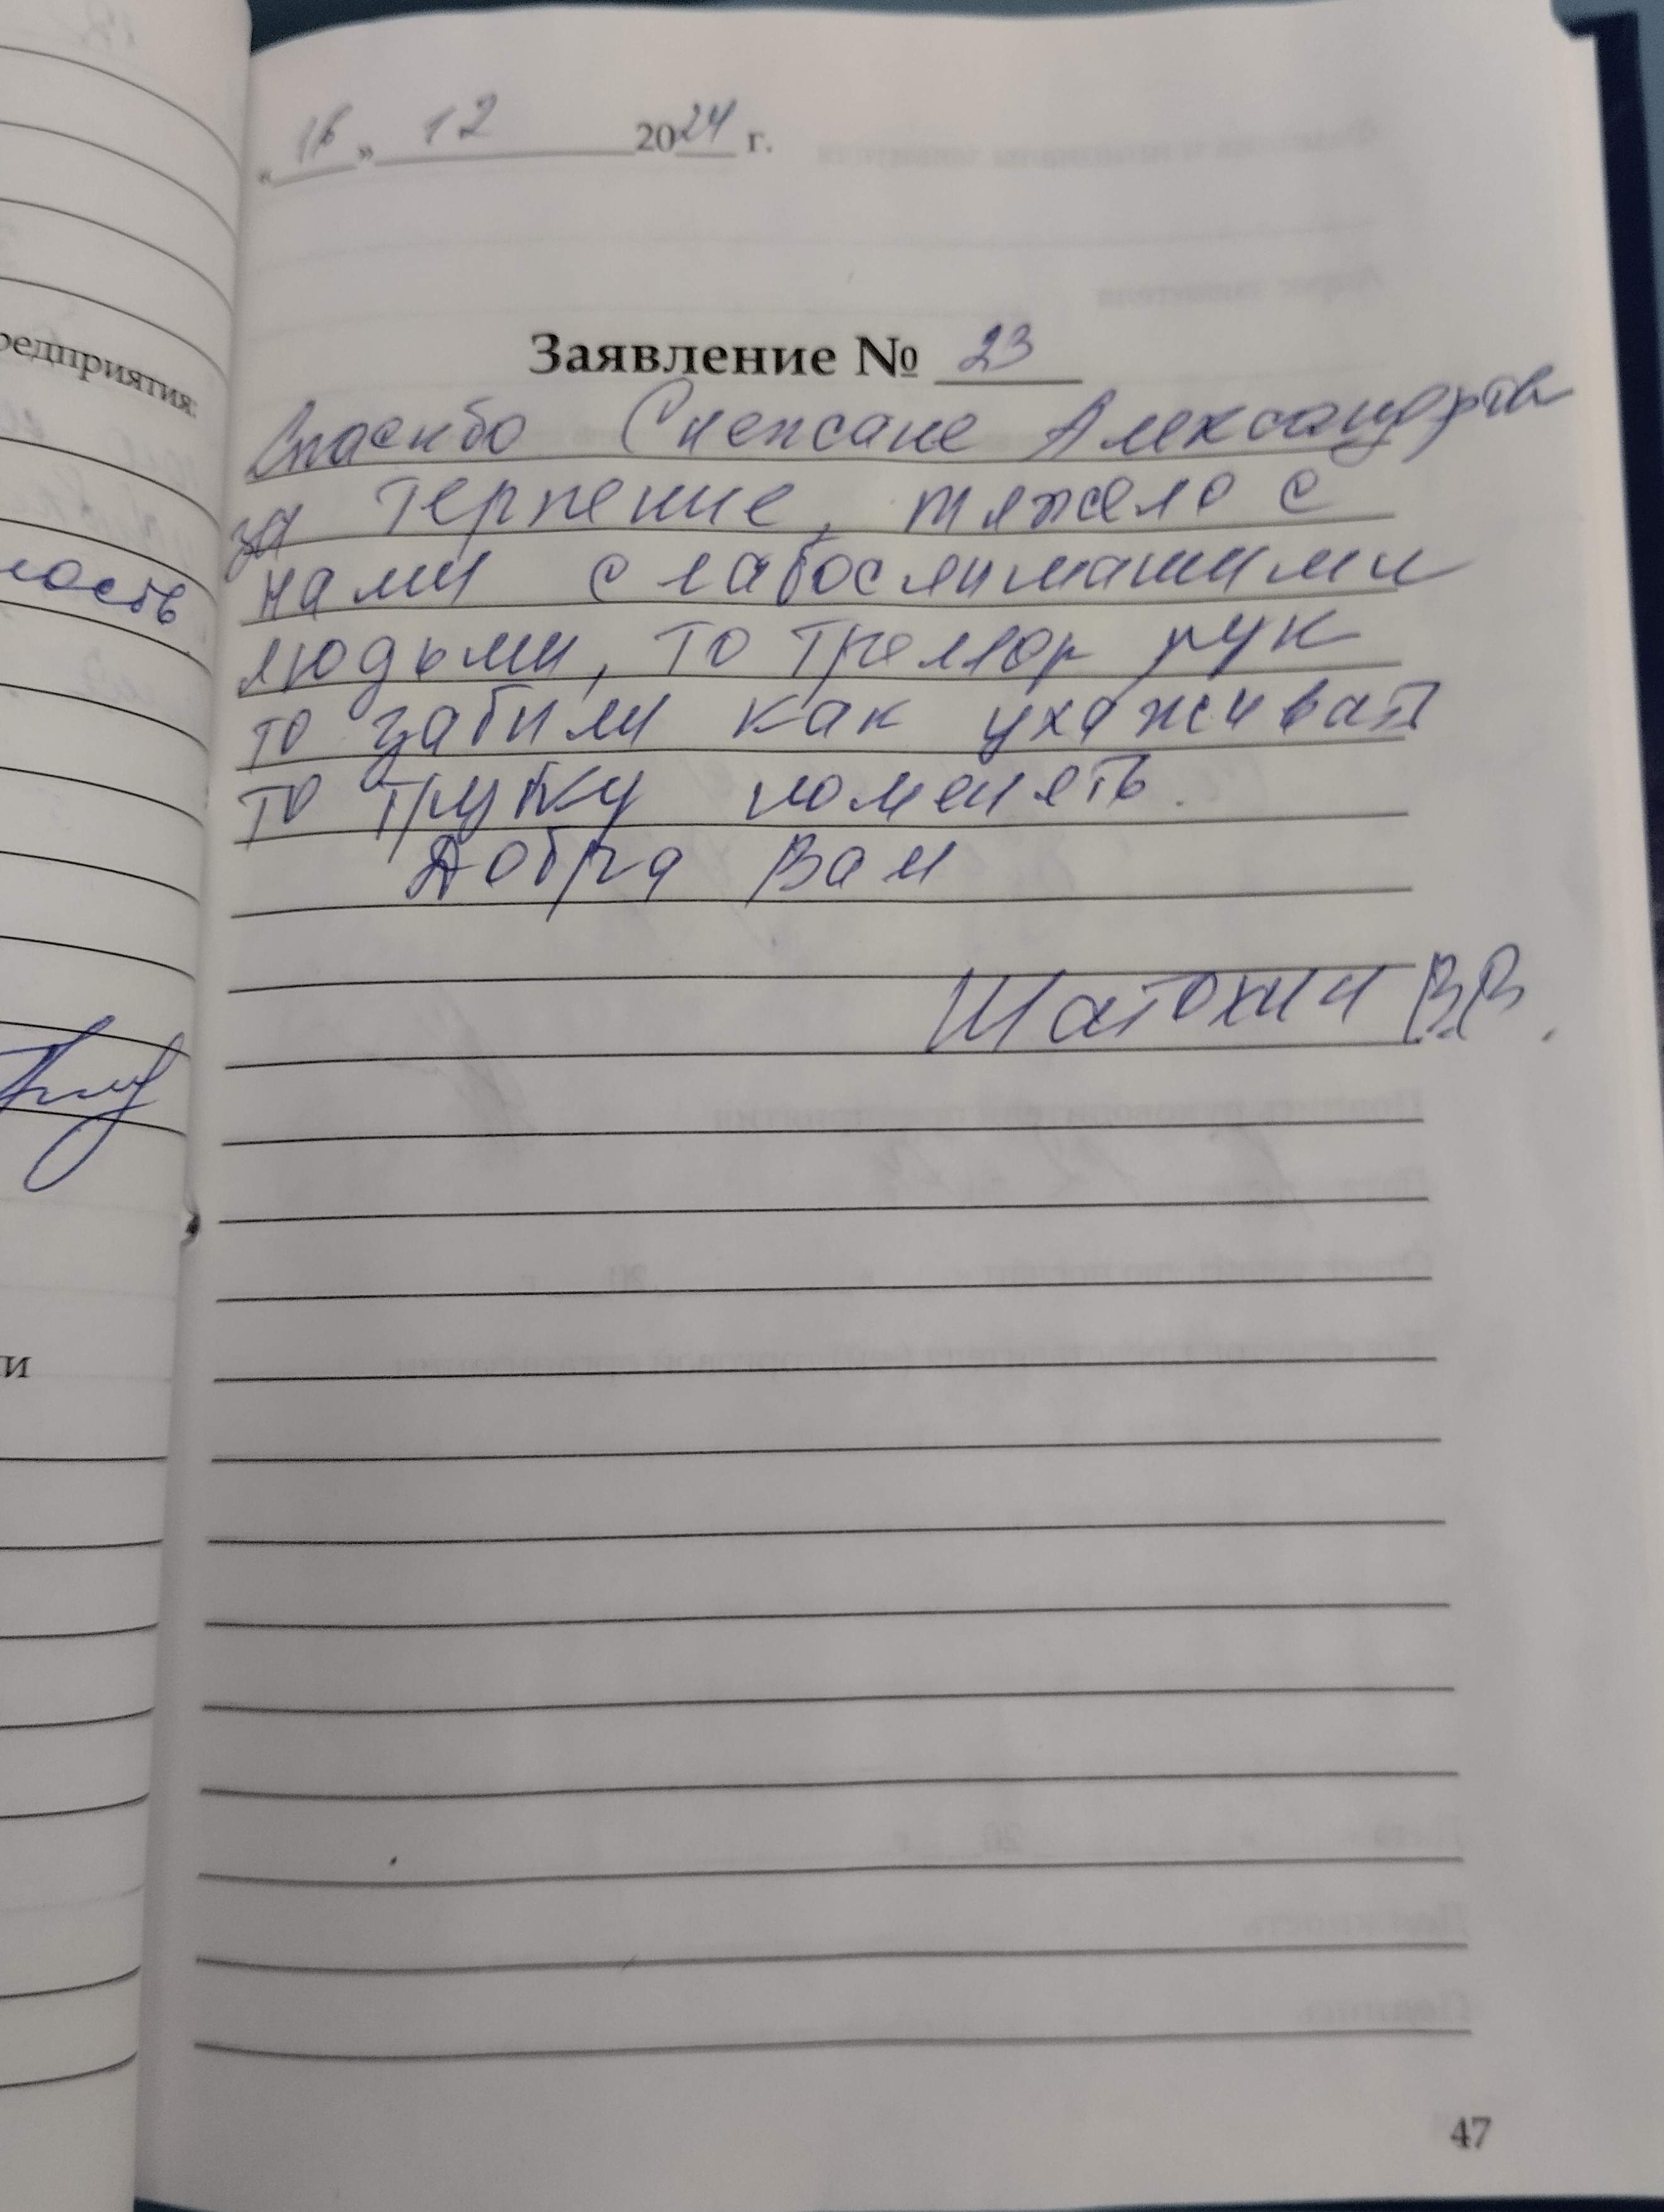 «16» 12 2024 г.
Заявление № 23
редприятия:
Спасибо Снежане Александровне
за терпение, тяжело с
ность
нами слабослышашими
людьми, то тремор рук
то забыли как ухаживат
то трубку поменять.
Добра Вам
Шатохин В.В.
и
47